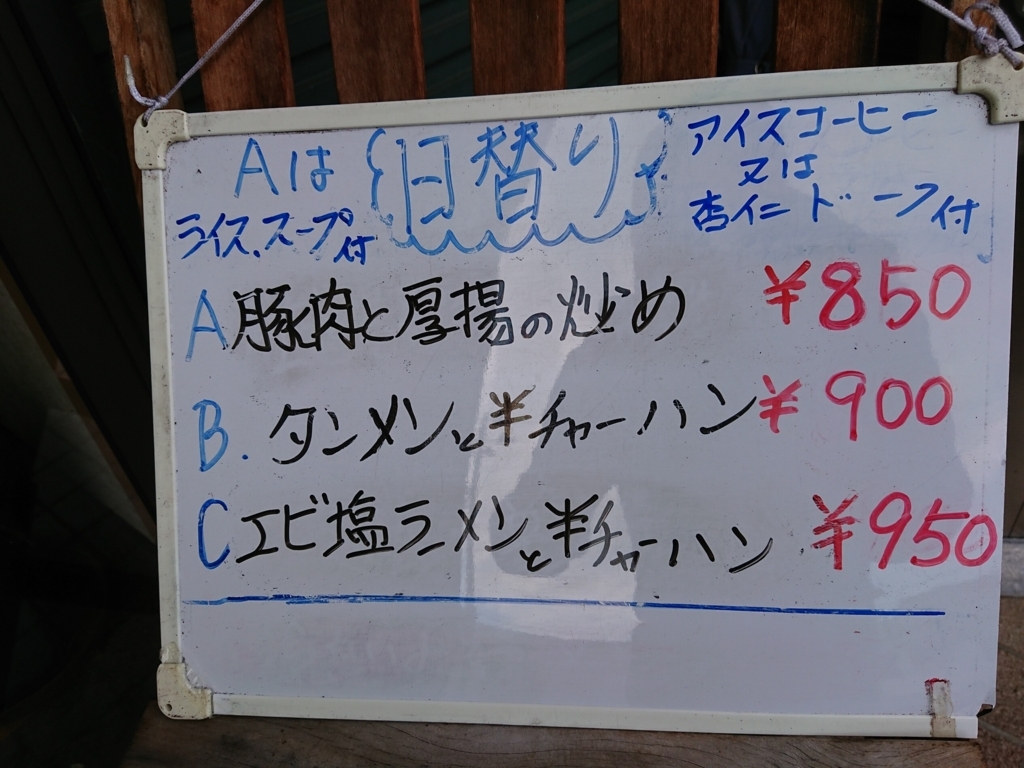 Aは
ライス、スープ付
日替り
アイスコーヒー
又は
杏仁ドーフ付
A 豚肉と厚揚の炒め ¥850
B. タンメンと半チャーハン ¥900
C エビ塩ラーメンと半チャーハン ¥950